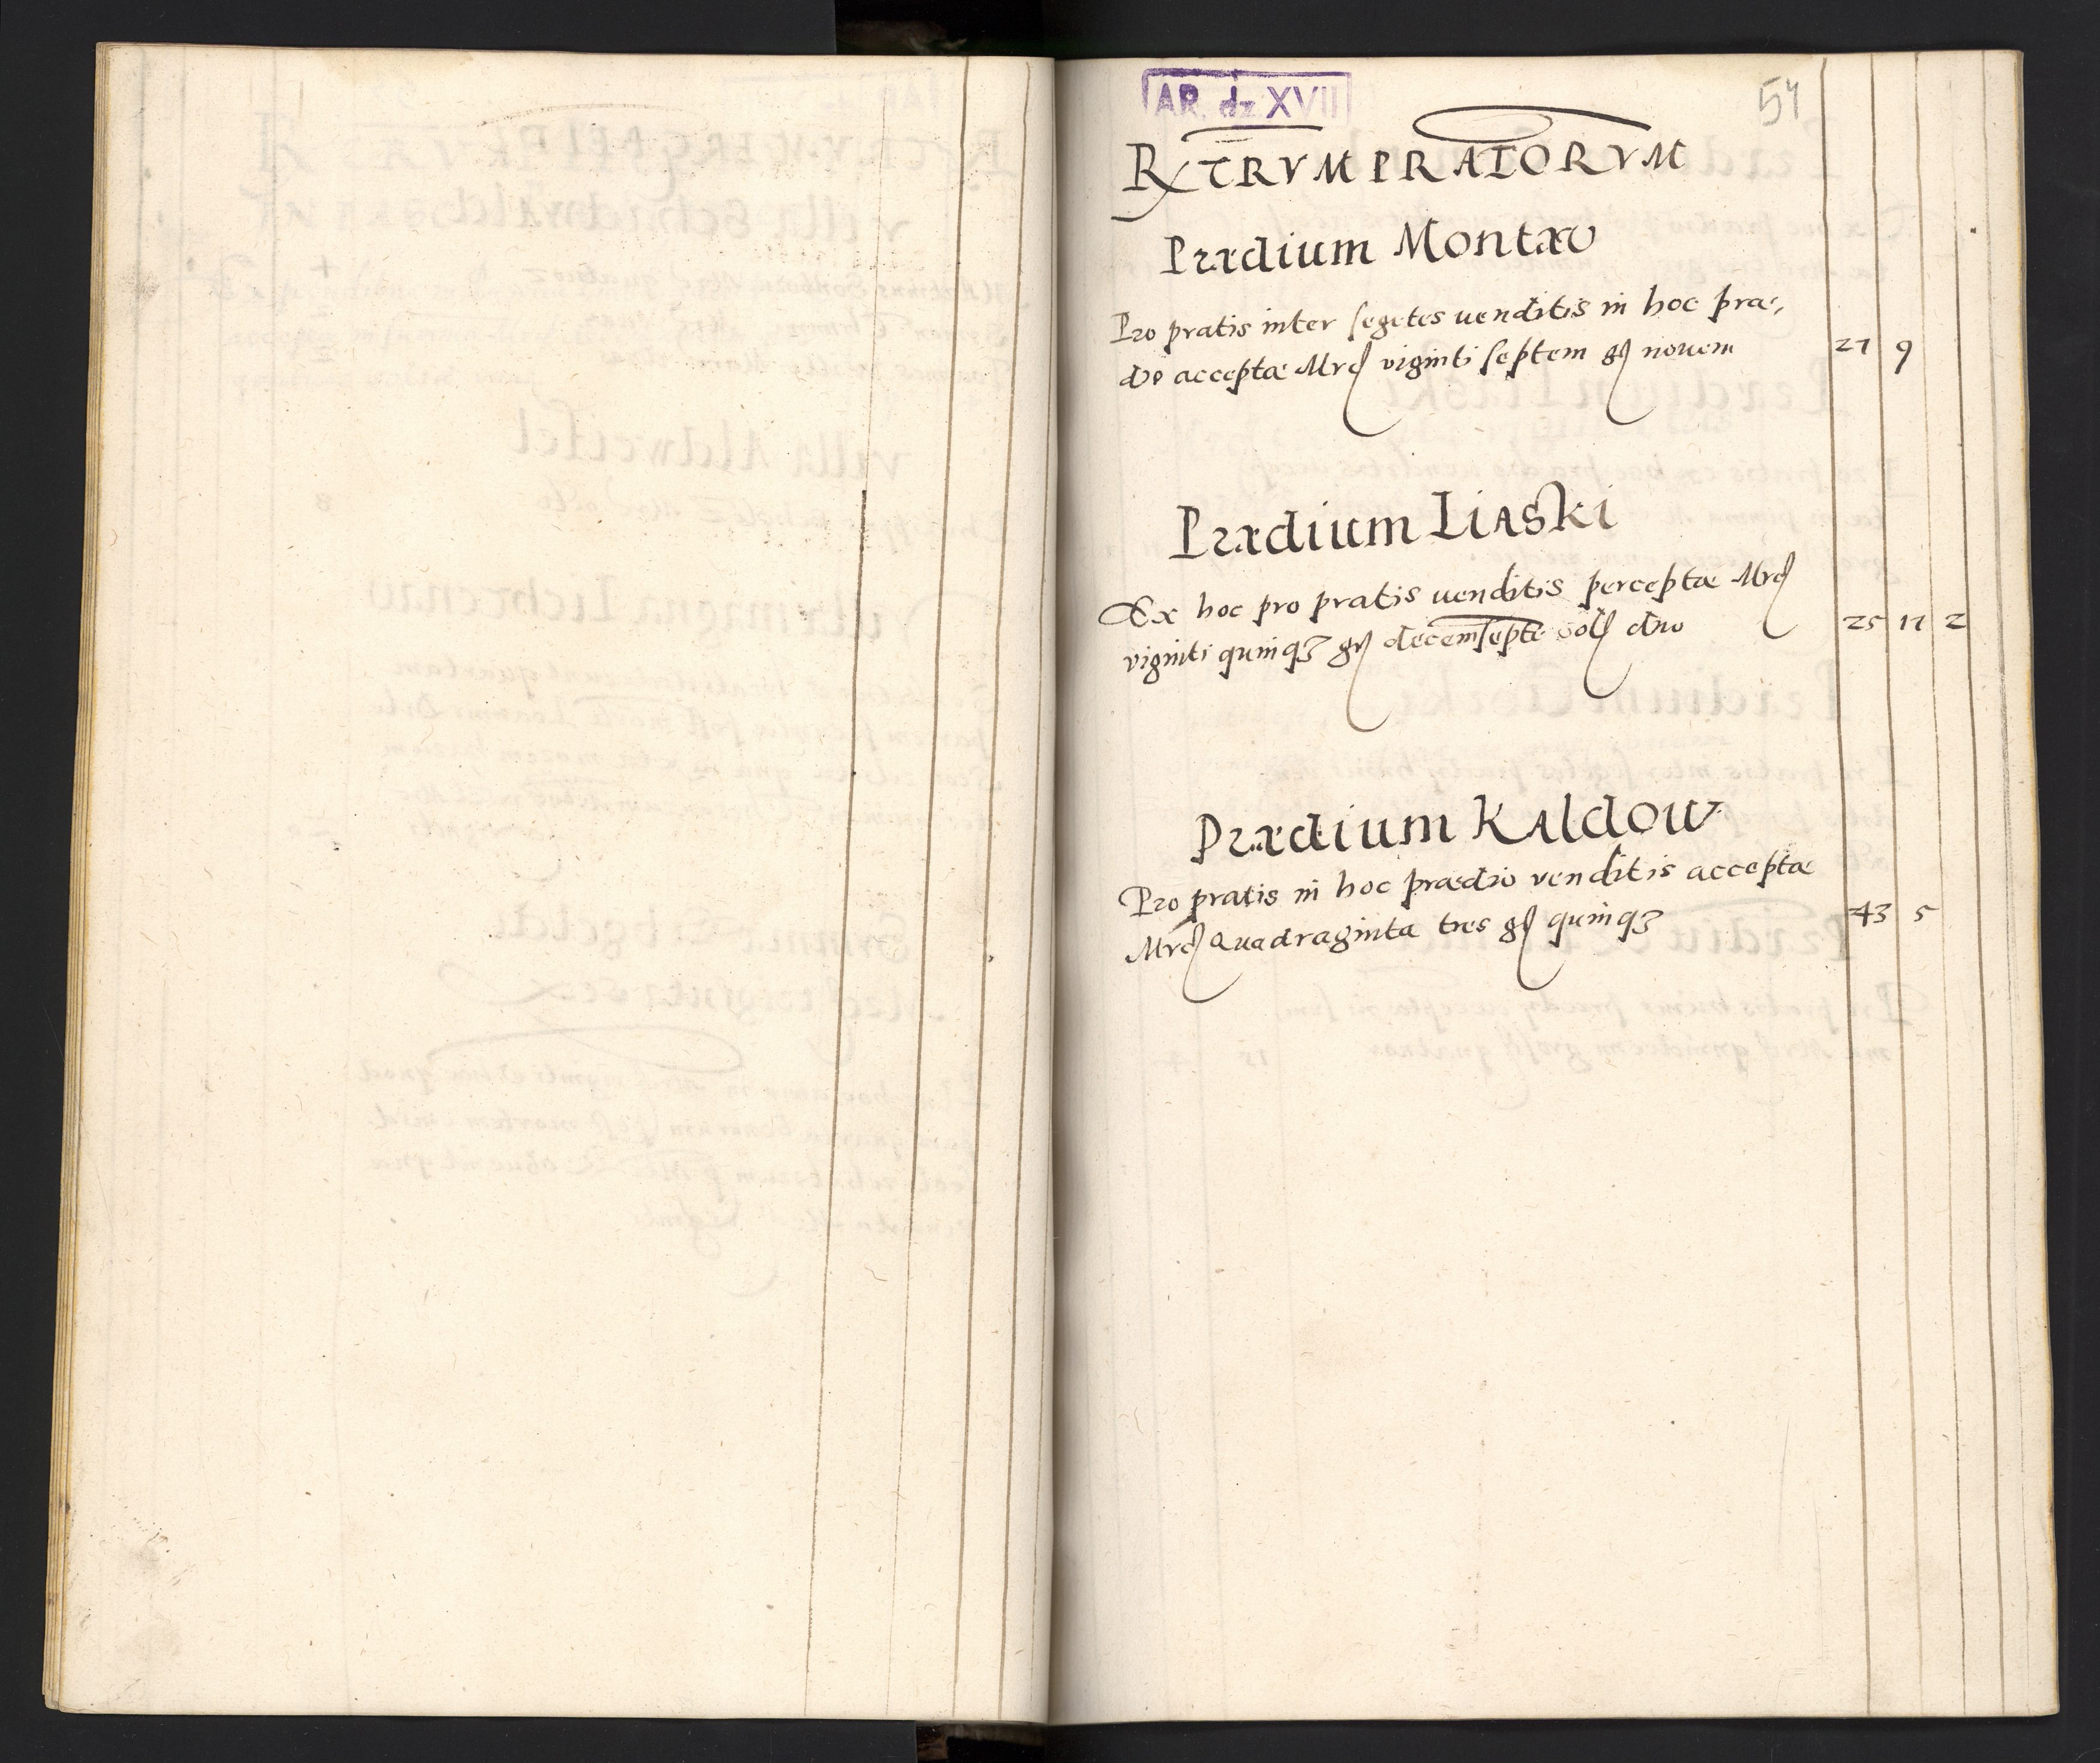 AR. dz XVII
54
RXTRVM PRATORVM
Prædium Montaw
Pro pratis inter segetes venditis in hoc præ,
dio acceptæ Mrc viginti septem gr novem 27 9
Prædium Liaski
Ex hoc pro pratis venditis perceptæ Mrc
viginti quinqꝫ gr decemsepte sol duo 25 17 2
Prædium Kaldow
Pro pratis in hoc prædio venditis acceptæ
Mrc Quadraginta tres gr quinqꝫ 43 5